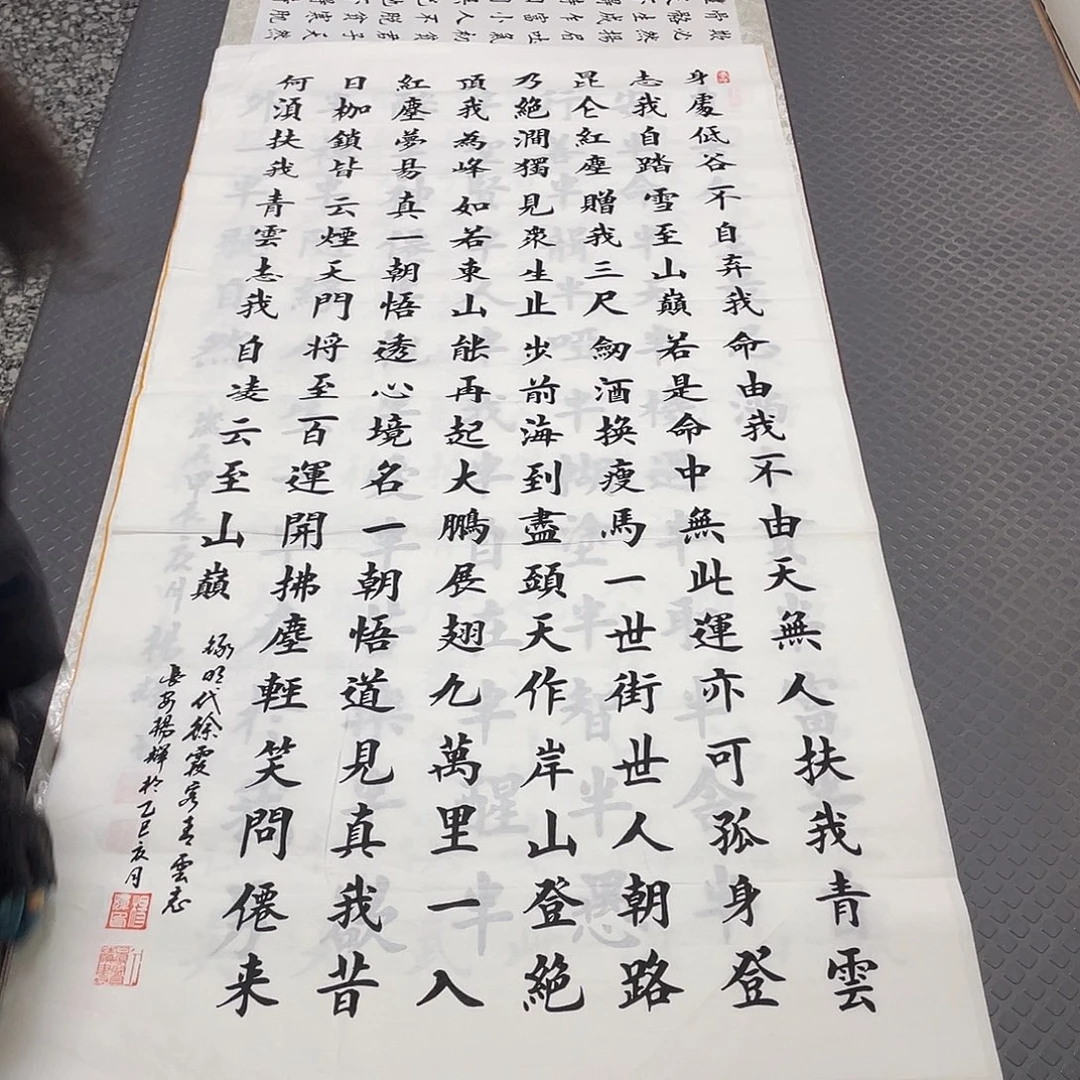 身處低谷不自弃我命由我不由天無人扶我青雲
志我自踏雪至山巔若是命中無此運亦可孤身登
昆仑紅塵贈我三尺劍酒换瘦馬一世街世人朝路
乃絕澗獨見衆生止步前海到盡頭天作岸山登絕
頂我為峰如若東山能再起大鵬展翅九萬里一入
紅塵夢易真一朝悟透心境名一朝悟道見真我昔
日枷鎖皆云煙天門将至百運開拂塵輕笑問僊来
何湏扶我青雲志我自凌云至山巔
錄明代徐霞客青雲志
長安楊輝於乙巳亥月